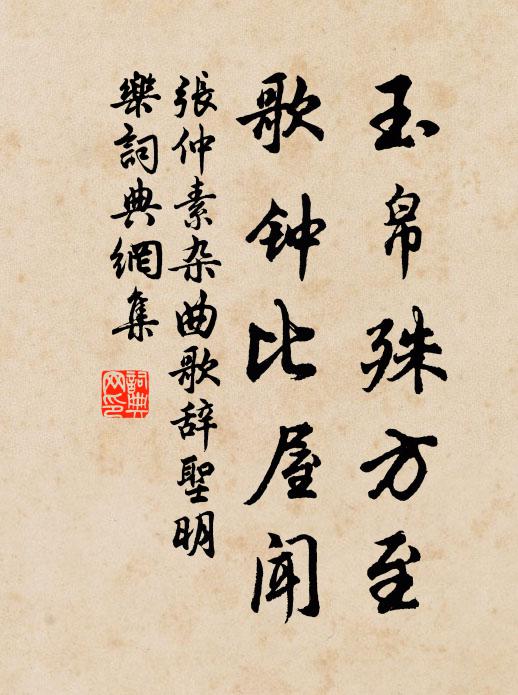 玉帛殊方至
歌钟比屋闻
張仲素杂曲歌辞聖明
樂詞典網集
詞典
网印